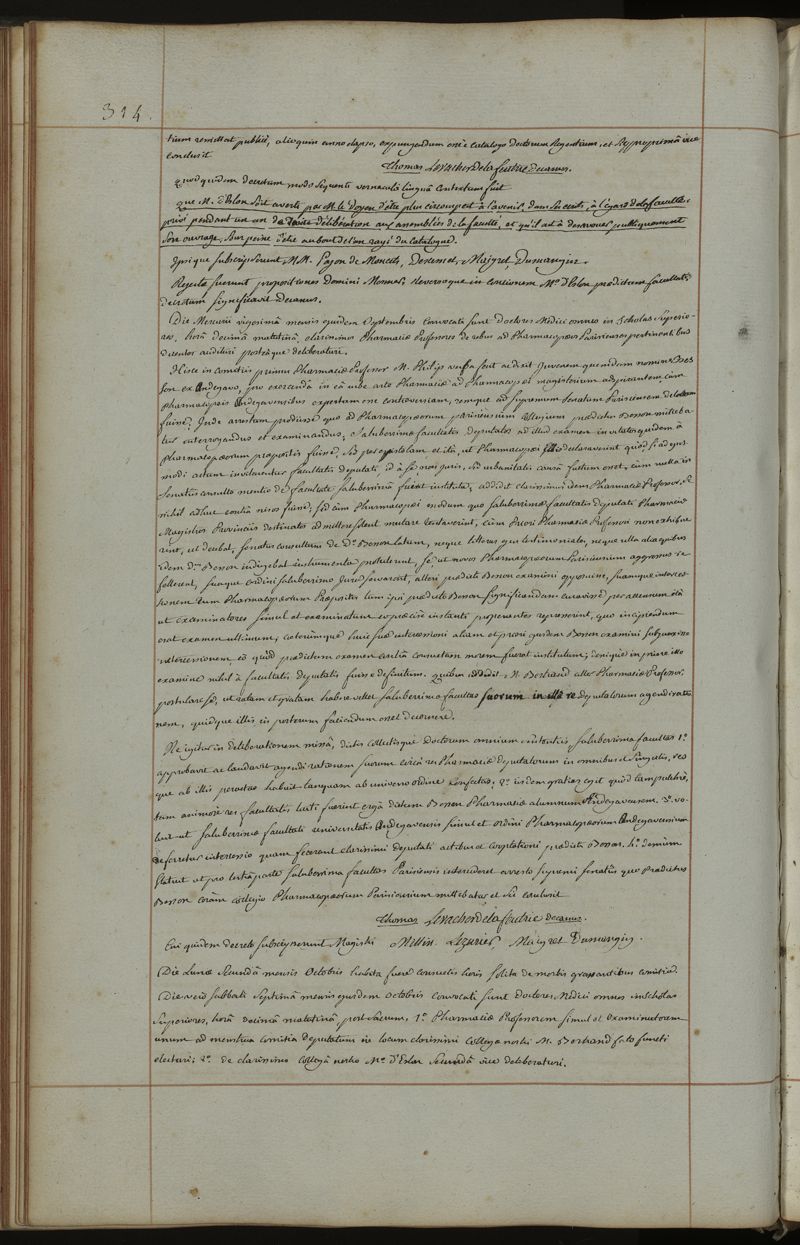 314.
tium remittat publicè, alioquin anno elapso, expungendum esse e catalogo doctorum Regentium, et sic primâ vice
conclusit
Thomas Levacher de la feutrie decanus.
quod quidem decretum modo sequenti vernaculâ linguâ contextum fuit
que M. d'Eslon soit averti par M. le doyen d'être plus circonspect à l'avenir, dans ses écrits, à l'égard de la faculté,
privé pendant un an de voix délibérative aux assemblées de la faculté, et qu'il ait à désavouer publiquement
son ouvrage, sous peine d'être au bout de l'an rayé du catalogue.
Ipsi que subscripserunt, MM. Pajon de Moncets, Dessessarts, Maigret, Dumangin.
Rejectæ fuerunt propositiones Domini Mesmer, reversoque in concionem Mo. d'Eslon prædictum facultatis
decretum significavit Decanus.
Die Mercurii vigesimâ mensis ejusdem Septembris convocati sunt doctores Medici omnes in Scholas superio-
res, horâ decimâ matutinâ, clarissimos Pharmaciæ Professores de rebus ad Pharmacopœos Parisienses pertinentibus
dicentes audituri posteàque deliberaturi.
Hisce in comitiis primus Pharmaciæ Professor M. Philip verba fecit ac dixit juvenem quemdam nomine Bes-
son ex Andegavo, pro exercendâ in eâ urbe arte Pharmaciæ ad Pharmacopœi magisterium adspirantem, cum
pharmacopœis Andegavensibus expertum esse controversiam, remque ad supremum Senatum Parisiensem delatam
fuisse; Inde arrestum prodiisse quo ad Pharmacopœorum parisiensium collegium prædictus Besson mitteba-
tur interrogandus et examinandus; Saluberrimæ facultatis deputatos ad illud examen invitatos quidem à
pharmacopœorum præpositis fuisse, sed per epistolam et ità, ut Pharmacopœi illis declaraverint quòd si ad ejus
modi actum invitarentur facultatis deputati, id à se, non juris, sed urbanitatis causâ factum esset, cum nulla in
Senatus consulto mentio de facultate saluberrimâ fuerat instituta; addidit clarissimus idem Pharmaciæ Professor
nihil adhuc contrà nisos fuisse; sed cùm Pharmacopœi modum quo saluberrimæ facultatis deputati Pharmaciæ
Magistros Provinciis destinatos admittere solent mutare tentaverint, cùm priori Pharmaciæ Professori non exhibue-
rint, ut decebat, senatus consultum de Do. Besson latum, neque litteras que testimoniales, neque ulla alia quibus
idem Dus. Besson indigebat instrumenta protulerint, se, ut novos Pharmacopœorum Parisiensium aggressus re-
pellerent, suaque ordini saluberrimo jura servarent, alteri prædicti Besson examini opposuisse, suamque interces-
sionem tum Pharmacopœorum Præpositis tum ipsi prædicto Besson significandam curavisse
ut examinatores simul et examinatum
erat examen ultimum; cæterùmque huic suæ intercessioni aliam et priori ejusdem Besson examini subjunxisse
intercessionem eò quòd prædictum examen contrà consuetum morem fuerat institutum; denique in priore illo
examine nihil à facultatis deputatis fuisse definitum. Quibus addidit M. Bertrand alter Pharmaciæ Professor,
postulare se, ut ratam et gratam habere vellet saluberrima facultas suorum in illâ re deputatorum agendi ratio-
nem, quidque illis in posterum faciendum esset decernere.
Re igitur in deliberationem missâ, dictis collectisque doctorum omnium sententiis saluberrima facultas 1o.
approbavit ac laudavit agendi rationem suorum circà res Pharmaciæ deputatorum in omnibus et singulis, res
que ab illis peractas habuit tanquam ab universo ordine confectas; 2o. iisdem gratias egit quòd tam pulchrè,
tam animosè res facultatis tuiti fuerint ergà dictum Besson Pharmaciæ alumnum Andegavensem. 3o. vo-
luit ut saluberrimæ facultati universitatis Andegavensis simul et ordini Pharmacopœorum Andegavensium
deferretur intercessio quam fecerant clarissimi deputati actibus cooptationis prædicti Besson. 4o. demùm
statuit ut pro tertiâ parte saluberrima facultas Parisiensis intercederet arresto supremi senatûs quo prædictus
Besson coràm collegio Pharmacopœorum Parisiensium mittebatur et sic conclusit
Thomas Levacher de la feutrie decanus.
Cui quidem decreto subscripserunt Magistri Millin Lezurier Maigret Dumangin.
Die Lunæ secundâ mensis Octobris habita fuere consuetis horis solita de morbis grassantibus comitia.
Die verò sabbati septimâ mensis ejusdem Octobris convocati sunt doctores Medici omnes in scholas
superiores, horâ decimâ matutinâ, post sacrum, 1o. Pharmaciæ Professorem simul et Examinatorem
unum ad menstrua comitia deputatum in locum clarissimi collegæ nostri M. Bertrand fato functi
electuri; 2o. de clarissimo collegâ nostro Mo. d'Eslon secundâ vice deliberaturi.